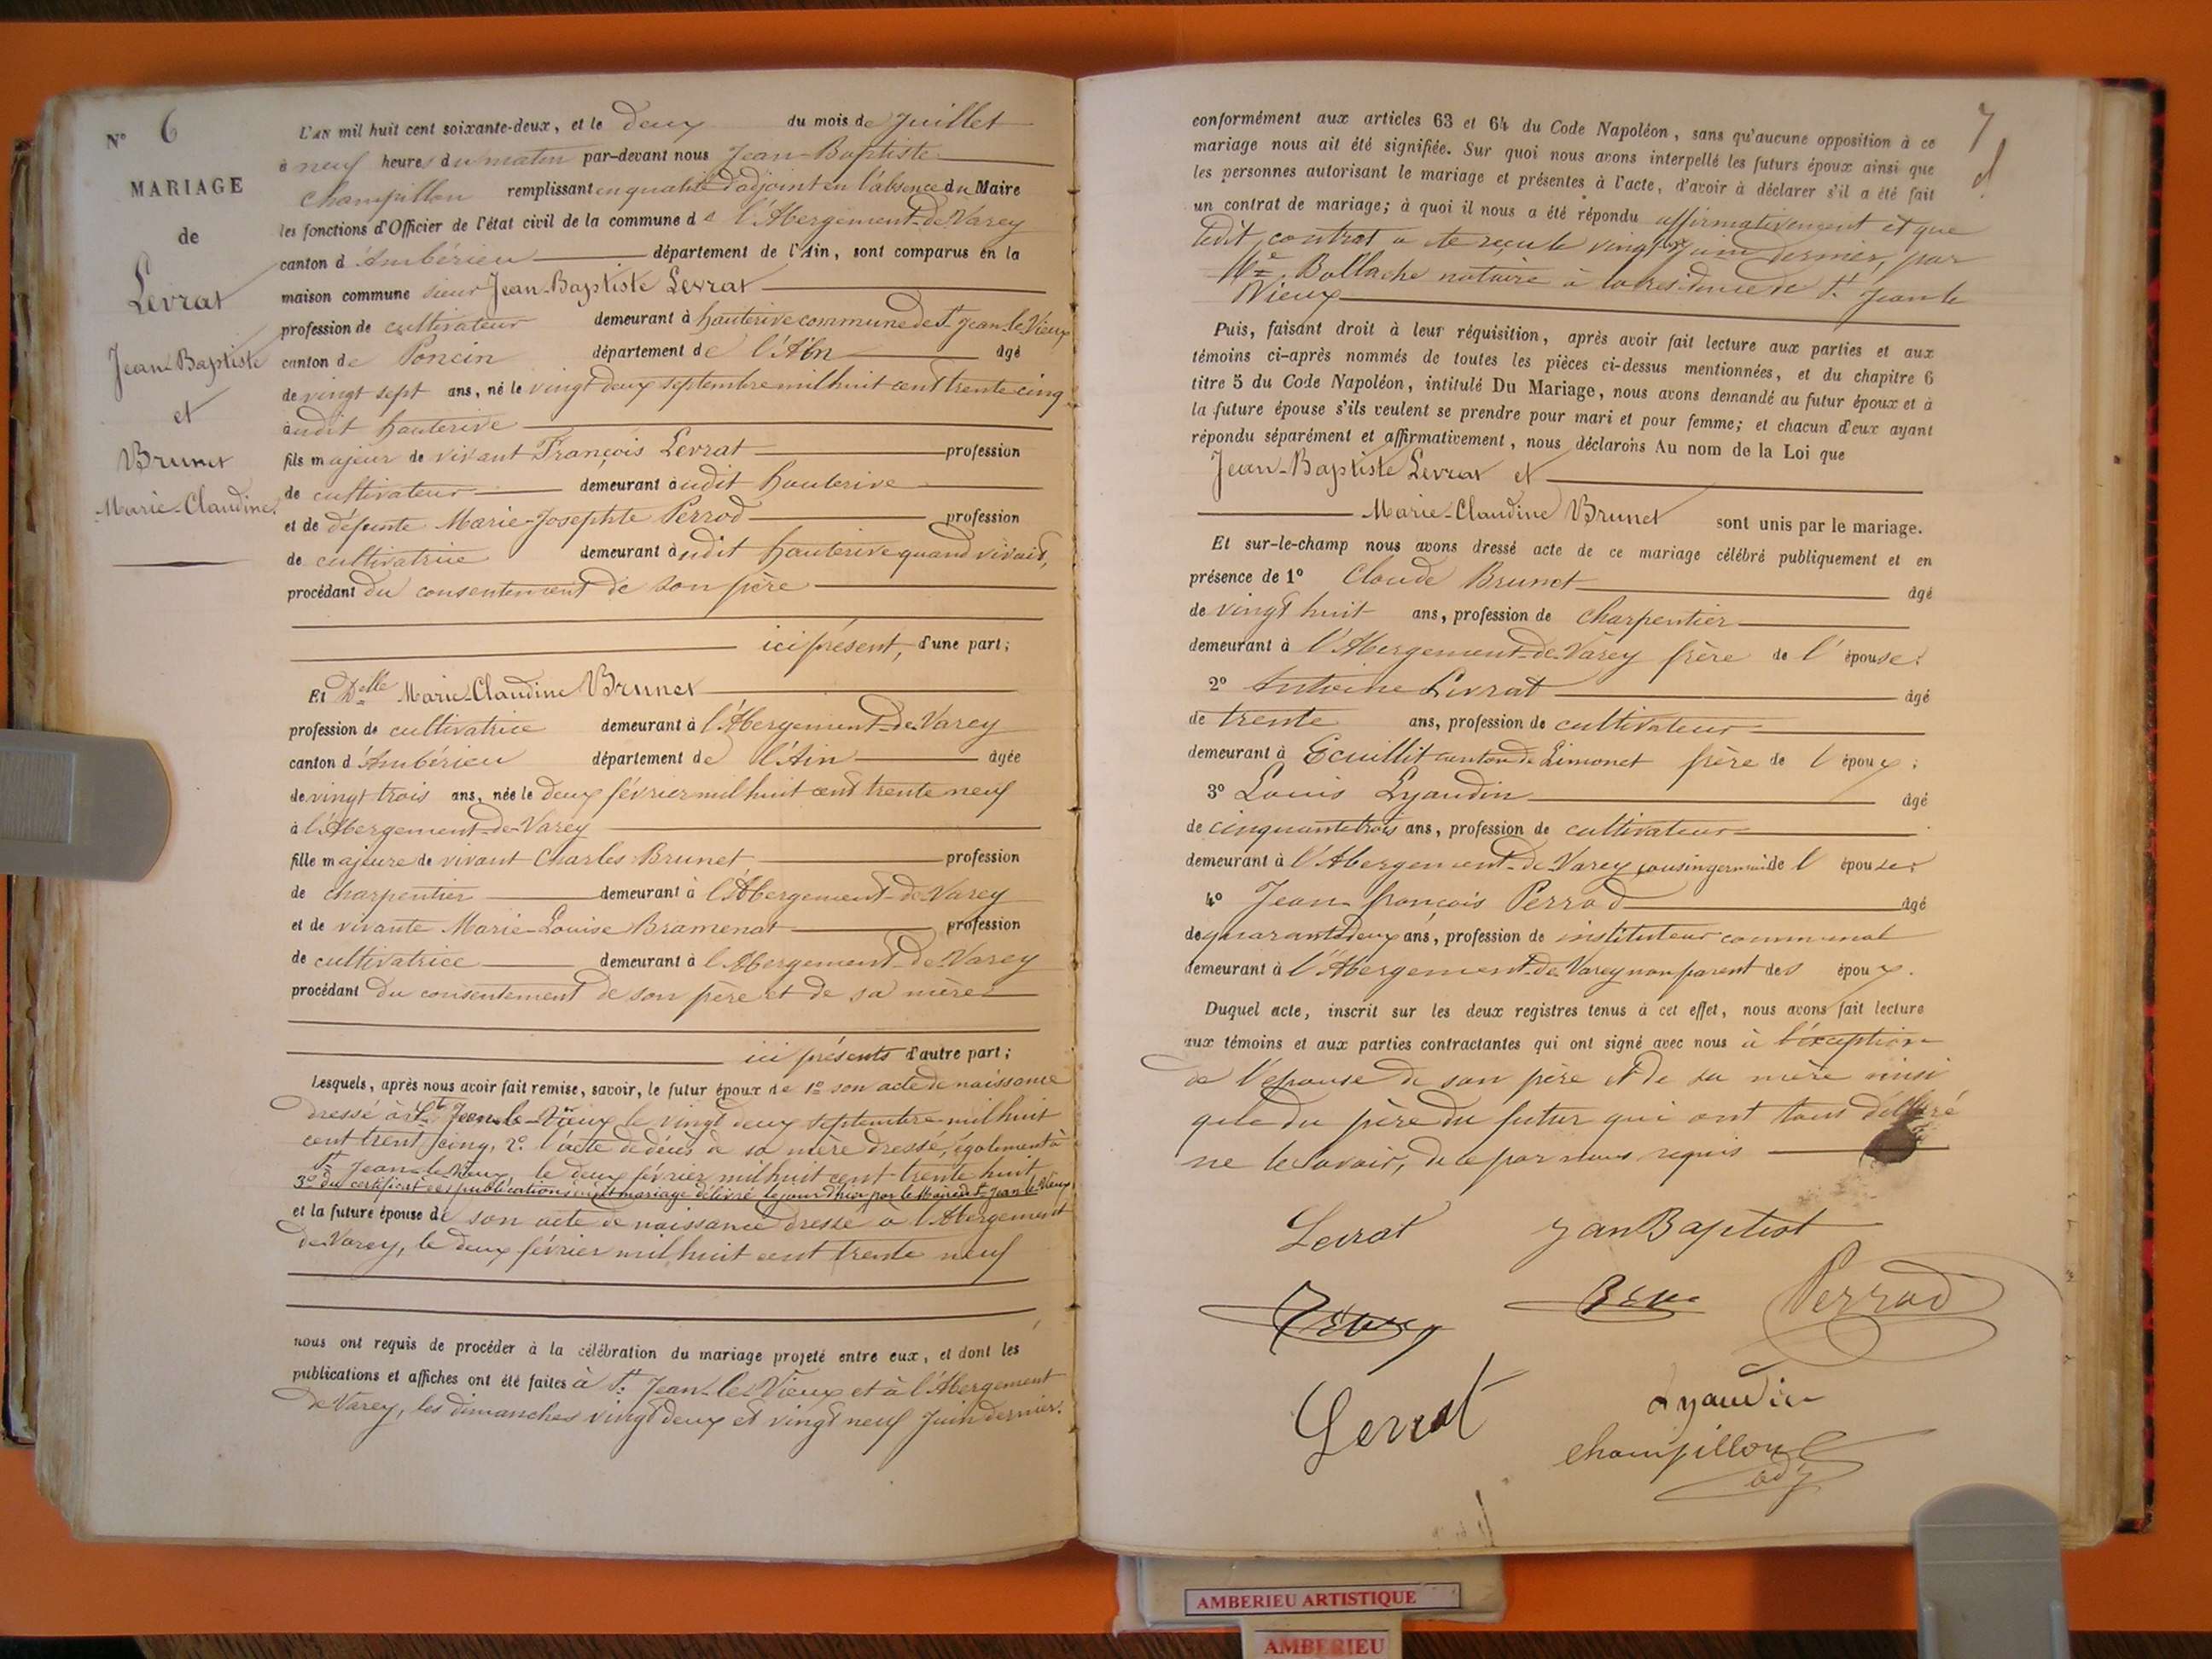 N° 6
MARIAGE
de
Levrat
Jean-Baptiste
et
Brunet
Marie-Claudine.
L'AN mil huit cent soixante-deux, et le deux du mois de Juillet
à neuf heures du matin par-devant nous Jean-Baptiste
Champillon remplissant en qualité d'adjoint en l'absence du Maire
les fonctions d'Officier de l'état civil de la commune de l'Abergement-de-Varey
canton d'Ambérieu département de l'Ain, sont comparus en la
maison commune sieur Jean-Baptiste Levrat
profession de cultivateur demeurant à hauterive commune de St Jean-le-Vieux
canton de Poncin département de l'Ain âgé
de vingt sept ans, né le vingt deux septembre mil huit cent trente cinq
audit hauterive
fils majeur de vivant François Levrat profession
de cultivateur demeurant audit hauterive
et de défunte Marie-Josephte Perrod profession
de cultivatrice demeurant audit hauterive quand vivait,
procédant du consentement de son père
ici présent, d'une part;
Et Delle Marie-Claudine Brunet
profession de cultivatrice demeurant à l'Abergement-de-Varey
canton d'Ambérieu département de l'Ain âgée
de vingt trois ans, née le deux février mil huit cent trente neuf
à l'Abergement-de-Varey
fille majeure de vivant Charles Brunet profession
de charpentier demeurant à l'Abergement-de-Varey
et de vivante Marie-Louise Bramenat profession
de cultivatrice demeurant à l'Abergement-de-Varey
procédant du consentement de son père et de sa mère
ici présents d'autre part;
Lesquels, après nous avoir fait remise, savoir, le futur époux de 1° son acte de naissance
dressé à St Jean-le-Vieux le vingt deux septembre mil huit
cent trent cinq, 2° l'acte de décès de sa mère dressé, également à
St Jean-le-Vieux, le deux février mil huit cent trente huit
3° du certificat des publications dudit mariage délivré le jour d'hier par le Maire de St Jean le Vieux
et la future épouse de son acte de naissance dressé à l'Abergement
de-Varey, le deux février mil huit cent trente neuf
nous ont requis de procéder à la célébration du mariage projeté entre eux, et dont les
publications et affiches ont été faites à St Jean-le-Vieux et à l'Abergement
de Varey, les dimanches vingt deux et vingt neuf Juin dernier.
7
conformément aux articles 63 et 64 du Code Napoléon, sans qu'aucune opposition à ce
mariage nous ait été signifiée. Sur quoi nous avons interpellé les futurs époux ainsi que
les personnes autorisant le mariage et présentes à l'acte, d'avoir à déclarer s'il a été fait
un contrat de mariage; à quoi il nous a été répondu affirmativement et que
ledit contrat a été reçu le vingt Juin dernier, par
Me Bollache notaire à la résidence de St Jean le
Vieux
Puis, faisant droit à leur réquisition, après avoir fait lecture aux parties et aux
témoins ci-après nommés de toutes les pièces ci-dessus mentionnées, et du chapitre 6
titre 5 du Code Napoléon, intitulé Du Mariage, nous avons demandé au futur époux et à
la future épouse s'ils veulent se prendre pour mari et pour femme; et chacun d'eux ayant
répondu séparément et affirmativement, nous déclarons Au nom de la Loi que
Jean-Baptiste Levrat et
Marie-Claudine Brunet sont unis par le mariage.
Et sur-le-champ nous avons dressé acte de ce mariage célébré publiquement et en
présence de 1° Claude Brunet âgé
de vingt huit ans, profession de charpentier
demeurant à l'Abergement-de-Varey frère de l'épouse.
2° Antoine Levrat âgé
de trente ans, profession de cultivateur
demeurant à Ecuillit canton de Limonet frère de l'époux;
3° Louis Lyaudin âgé
de cinquante trois ans, profession de cultivateur
demeurant à l'Abergement-de-Varey cousin germain de l'épouse.
4° Jean-françois Perrod âgé
de quarante deux ans, profession de instituteur communal
demeurant à l'Abergement-de-Varey non parent des époux.
Duquel acte, inscrit sur les deux registres tenus à cet effet, nous avons fait lecture
aux témoins et aux parties contractantes qui ont signé avec nous à l'exception
de l'épouse de son père et de sa mère ainsi
que du père du futur qui ont tous déclaré
ne le savoir, de ce par nous requis
Levrat JanBaptist
Perrod
Levrat
Lyaudin
Champillon
adj
AMBERIEU ARTISTIQUE
AMBERIEU